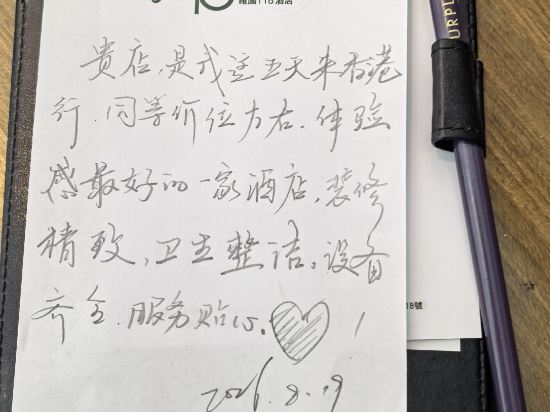 維園116酒店
貴店,是我这五天来香港
行.同等价位左右.体验
感最好的一家酒店,装修
精致,卫生整洁。设备
齐全.服务贴心.!
2026.8.19
URPL
18號